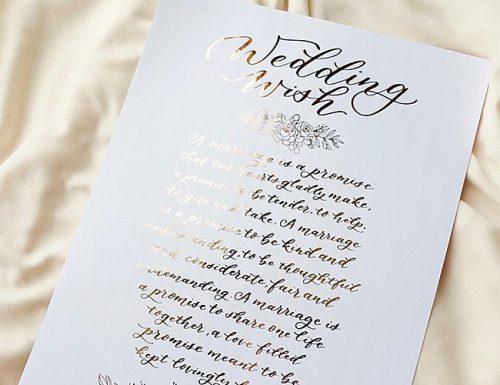 Wedding
Wish
A marriage is a promise
that two hearts gladly make,
a promise to be tender, to help,
to give and take. A marriage
is a promise to be kind and
understanding, to be thoughtful
and considerate, fair and
undemanding. A marriage is
a promise to share one life
together, a love filled
promise meant to be
kept lovingly